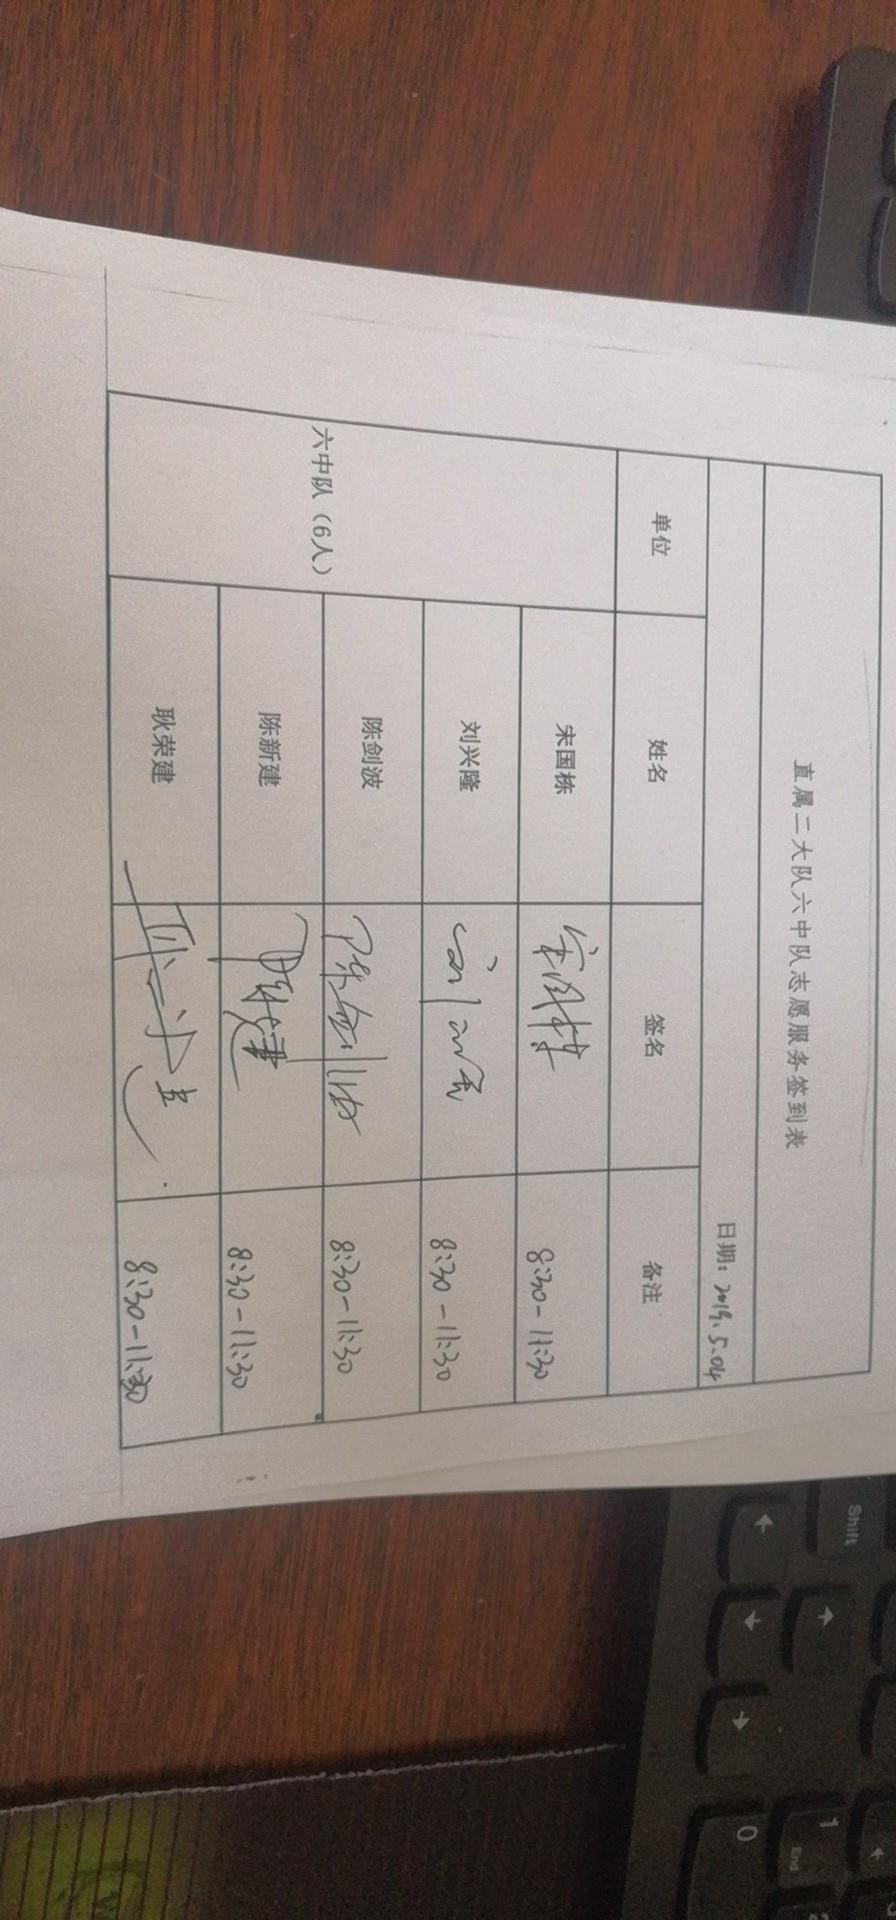 直属二大队六中队志愿服务签到表
日期：2019.5.04
单位 姓名 签名 备注
六中队（6人）
宋国栋 宋国栋 8:30-11:30
刘兴隆 刘兴隆 8:30-11:30
陈剑波 陈剑波 8:30-11:30
陈新建 陈新建 8:30-11:30
耿荣建 8:30-11:30
Shift
1
End
0